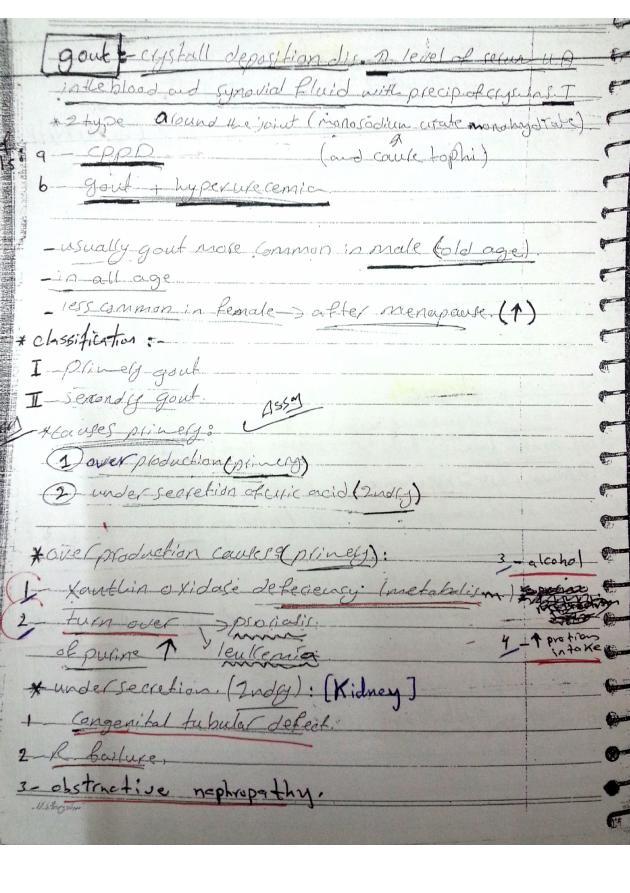 gout :- crystall deposition dis. ↑ level of serum U.A
in the blood and synovial fluid with precip of crys in S.T
* 2 type around the joint (monosodium urate monohydrate)
a - CPPD (and cause tophi)
b gout + hyperurecemia
- usually gout more common in male (old age)
- in all age
- less common in female → after menapause. (↑)
* classification :-
I - primery gout
II - secondry gout.
Assy
* causes primery:
① over production (primery)
② under secretion of uric acid (2ndry)
* over production causes (primery):
3 - alcohol
1 - Xanthin oxidase defeciency (metabalism)
2 - turn over → psoriasis.
of purine ↑ leukemia
4 - ↑ protion intake
* under secretion. (2ndry) : [Kidney]
1 Congenital tubular defect.
2 - R failure.
3 - obstructive nephropathy.